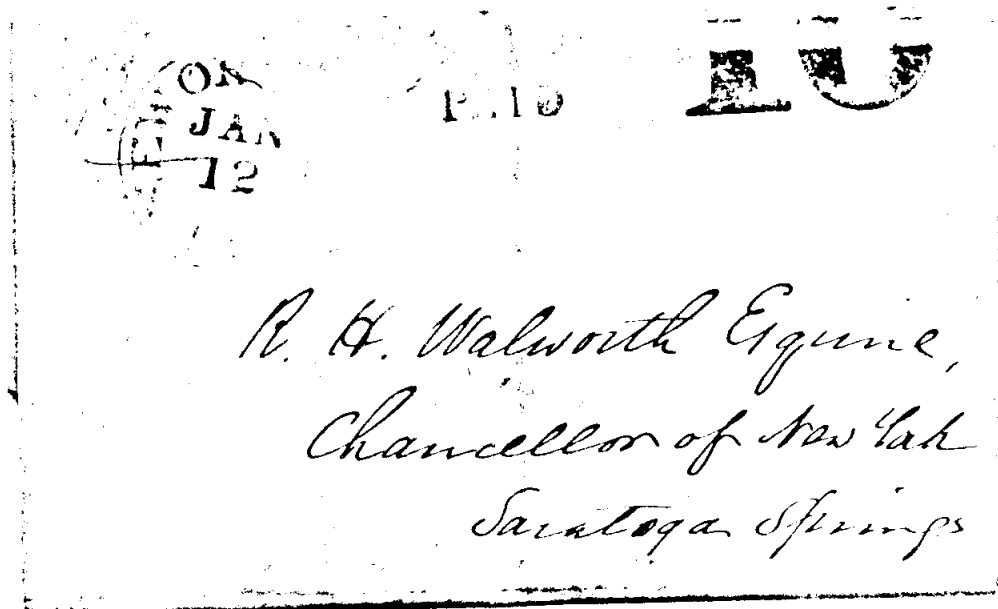 ON
JAN
12
PAID
10
R. H. Walworth Esquire,
Chancellor of New York
Saratoga Springs